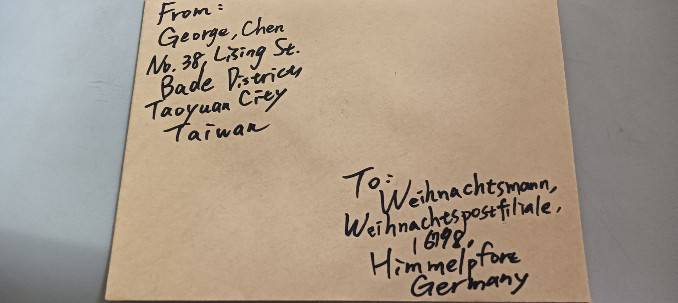 From:
George, Chen
No. 38, Lising St.
Bade District
Taoyuan City
Taiwan
To:
Weihnachtsmann,
Weihnachtspostfiliale,
16798,
Himmelpfort
Germany